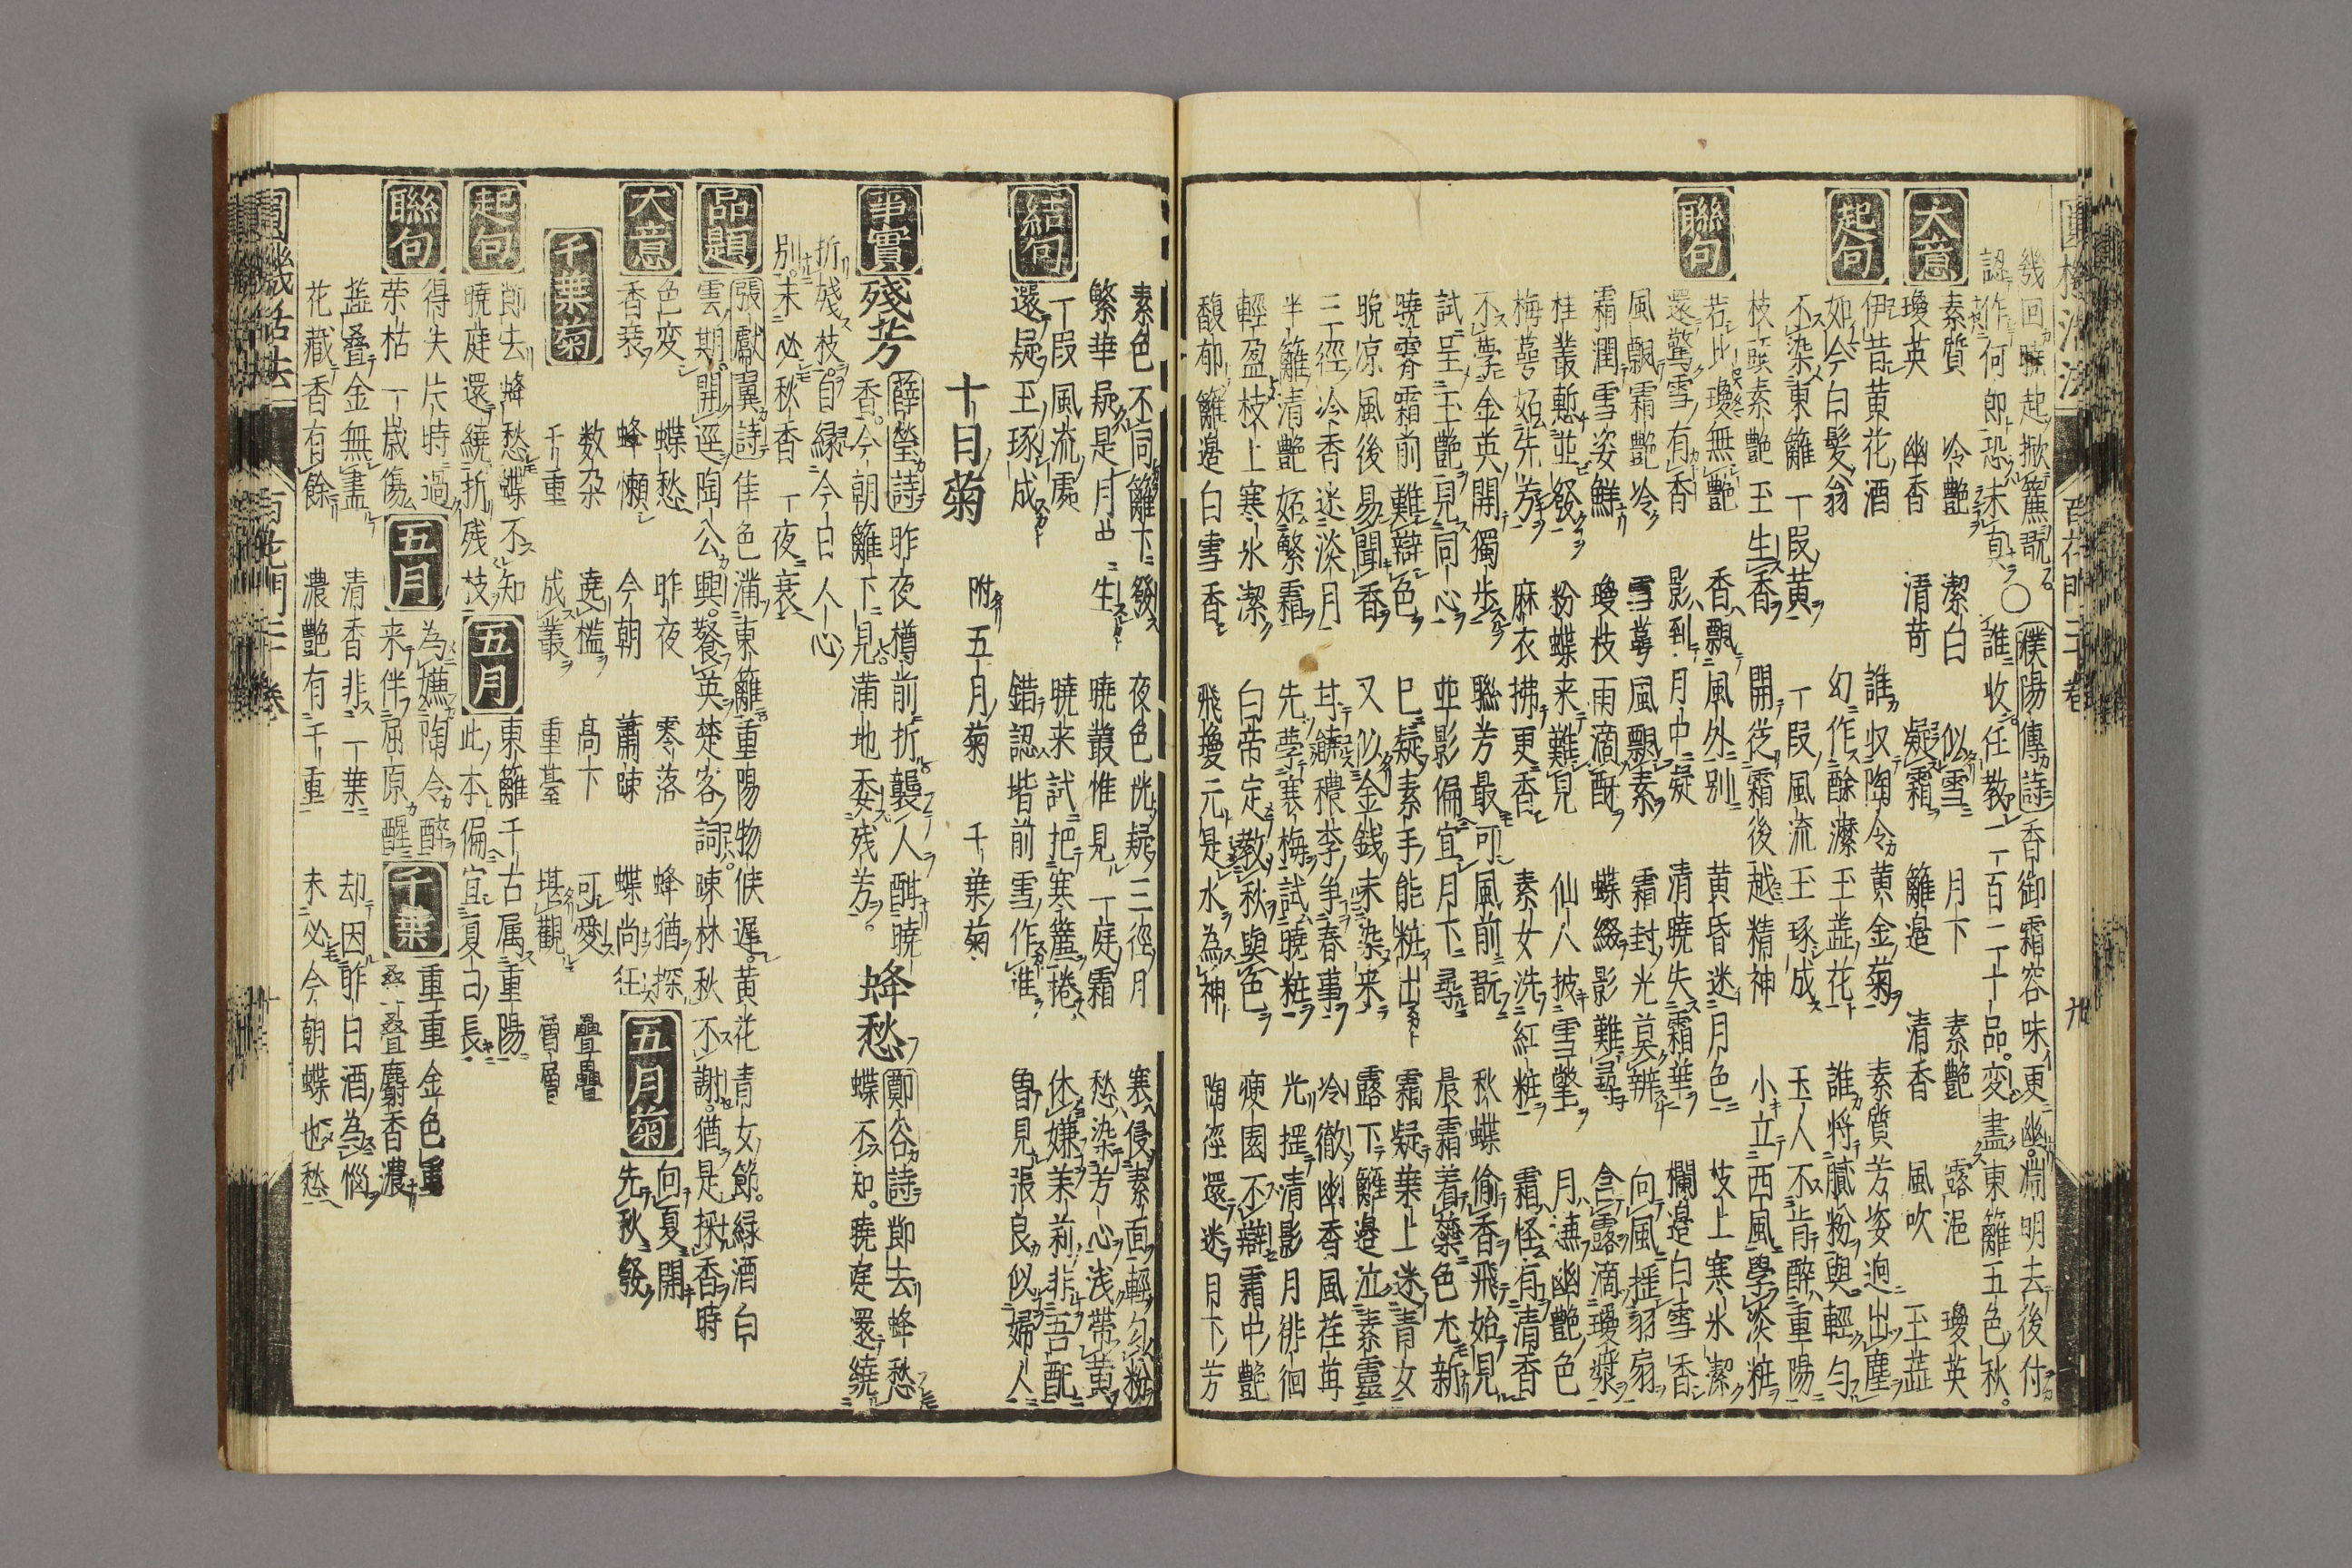 幾回曉起掀簾覷〇濮陽傳詩香御霜容味更幽淵明去後付
認作何郎恐未真誰收任教一百二十品変盡東籬五色秋
大意
素質 冷艷 潔白 似雪 月下 素艷 露浥 瓊英
瓊英 幽香 清苛 凝霜 籬邉 清香 風吹 玉蕋
起句
伊昔黄花酒 誰収陶令黄金菊 素質芳姿迥出塵
如今白髪翁 幻作酴釄玉蕋花 誰将膩粉與輕勻
不染東籬一叚黄 一叚風流玉琢成 玉人不肯醉重陽
枝頭素艷玉生香 開従霜後越精神 小立西風學淡粧
聯句
若比瓊無艷 香飄風外别 黄昏迷月色 枝上寒氷潔
還驚雪有香 影到月中凝 清曉失霜華 欄邉白雪香
風飄霜艷冷 雪萼風飄素 霜封光莫辨 向風揺羽扇
霜潤雪姿鮮 瓊枝雨滴酥 蝶綴影難尋 含露滴瓊漿
桂叢慙並發 粉蝶来難見 仙人披雪氅 月漉幽艷色
梅蕚妬先芳 麻衣拂更香 素女洗紅粧 霜怪有清香
不學金英開獨歩 聯芳最可風前翫 秋蝶偷香飛始見
試呈玉艷見同心 並影偏宜月下尋 晨霜着蘂色尤新
曉霽霜前難辯色 已疑素手能粧出 霜凝葉上迷青女
晩凉風後易聞香 又似金銭未染来 露下籬邉泣素靈
三徑冷香迷淡月 甘饒穠李争春事 冷徹幽香風荏苒
半籬清艷妬繁霜 先學寒梅試曉粧 光揺清影月徘徊
輕盈枝上寒氷潔 白帝定教秋與色 瘐園不辯霜中艷
馥郁籬邉白雪香 飛瓊元是水為神 陶徑還迷月下芳
素色不同籬下發 夜色恍疑三徑月 寒侵素面輕勻粉
繁華疑是月中生 曉叢惟見一庭霜 愁染芳心浅帶黄
結句
一叚風流處 曉来試把寒簾捲 休嫌茉莉非吾配
還疑玉琢成 錯認堦前雪作堆 曽見張良似婦人
十日菊 附五月菊 千葉菊
事實
殘芳 薛瑩詩昨夜樽前折襲人酣曉
香今朝籬下見満地委残芳 蜂愁 鄭谷詩節去蜂愁
蝶不知曉庭還繞
折殘枝自縁今日人心
別未必秋香一夜衰
品題
張獻翼詩佳色満東籬重陽物候遅黄花青女節緑酒白
雲期開逕陶公興餐英楚客詞暕林秋不謝猶是採香時
大意
色変 蝶愁 昨夜 零落 蜂猶探 五月菊 向夏開
香衰 蜂懶 今朝 蕭暕 蝶尚狂 先秋發
千葉菊
数朶 遶檻 高下 可愛 疊疊
千重 成叢 重臺 堪觀 層層
起句
節去蜂愁蝶不知 五月 東籬千古属重陽
曉庭還繞折残枝 此本偏宜夏日長
聯句
得失片時過 五月 為嫵陶令醉 千葉 重重金色重
荣枯一歳傷 来伴屈原醒 叠叠麝香濃
蕋叠金無盡 清香非一葉 却因昨日酒為惱
花藏香有餘 濃艷有千重 未必今朝蝶也愁
圓機活法 百花門二十巻